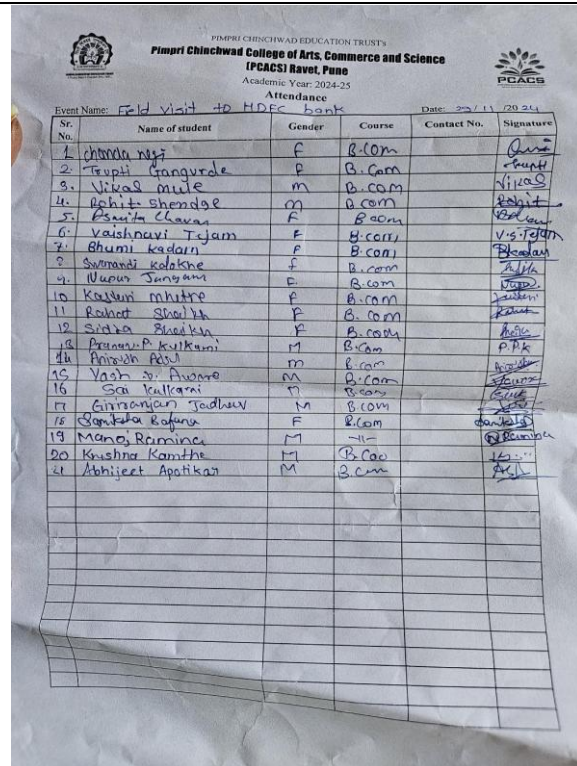 PIMPRI CHINCHWAD EDUCATION TRUST's
Pimpri Chinchwad College of Arts, Commerce and Science
(PCACS) Ravet, Pune
Academic Year: 2024-25
Attendance
PCACS
Event Name: Field visit to HDFC bank Date: 29/11/2024
Sr. No. Name of student Gender Course Contact No. Signature
1 chanda negi F B.com
2. Trupti Gangurde F B.Com Trupti
3. Vikas mule m B.com Vikas
4. Rohit Shendge m B com Rohit
5. Asmita Chavan F B com
6. Vaishnavi Tejam F B.com V.S.Tejam
7. Bhumi kadam F B.com Bkadam
8 Swanandi kolokhe f B.com
9. Nupur Jangam F B.com Nupur
10 Kasturi mhetre F B.com
11 Rahat Shaikh F B.com
12 Sidra Shaikh F B.com
13 Pranav.P.Kulkarni M B.Com P.P.K
14 Anirudh Adsul m B com
15 Yash Aware M B.Com
16 Sai kulkarni M B.com
17 Giriranjan Jadhav M B.com
18 Samiksha Bafana F B.Com
19 Manoj Ramina M -11- Ramina
20 Krushna Kamthe M B.Com
21 Abhijeet Apotikar M B.Com